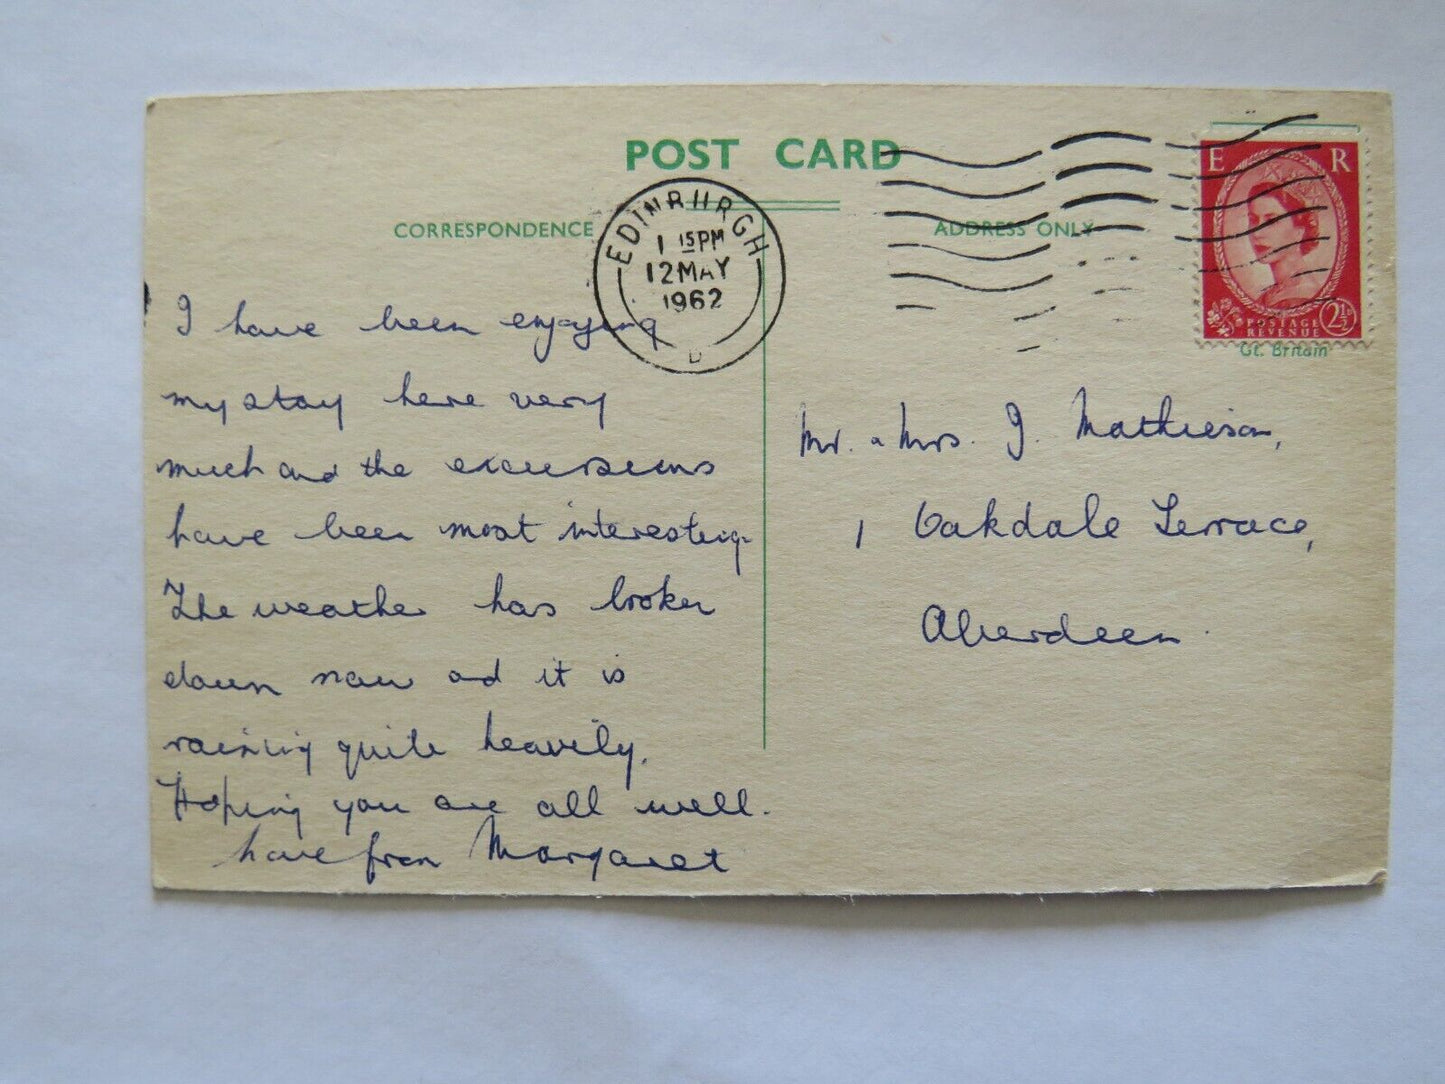 POST CARD
CORRESPONDENCE
ADDRESS ONLY
EDINBURGH
1 15PM
12 MAY
1962
D
E R
POSTAGE
REVENUE
2½D
Gt. Britain
I have been enjoying
my stay here very
much and the excursions
have been most interesting.
The weather has broken
down now and it is
raining quite heavily.
Hoping you are all well.
love from Margaret
Mr. & Mrs. J. Mathieson,
1 Oakdale Terrace,
Aberdeen.